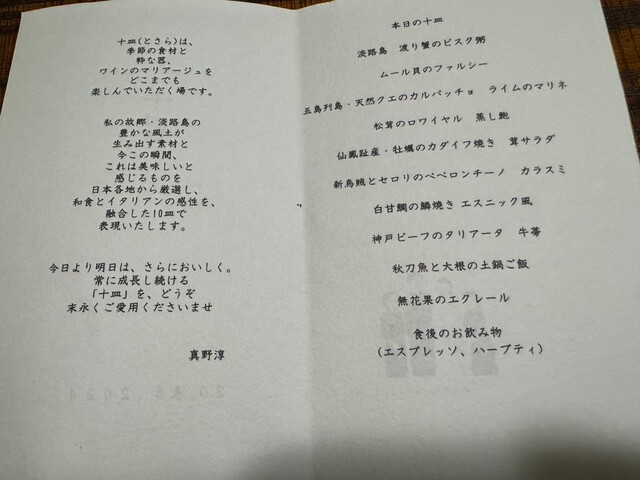 十皿(とさら)は、
季節の食材と
粋な器、
ワインのマリアージュを
どこまでも
楽しんでいただく場です。
私の故郷・淡路島の
豊かな風土が
生み出す素材と
今この瞬間、
これは美味しいと
感じるものを
日本各地から厳選し、
和食とイタリアンの感性を、
融合した10皿で
表現いたします。
今日より明日は、さらにおいしく。
常に成長し続ける
「十皿」を、どうぞ
末永くご愛用くださいませ
真野淳
本日の十皿
淡路島 渡り蟹のビスク粥
ムール貝のファルシー
五島列島・天然クエのカルパッチョ ライムのマリネ
松茸のロワイヤル 蒸し鮑
仙鳳趾産・牡蠣のカダイフ焼き 茸サラダ
新烏賊とセロリのペペロンチーノ カラスミ
白甘鯛の鱗焼き エスニック風
神戸ビーフのタリアータ 牛蒡
秋刀魚と大根の土鍋ご飯
無花果のエクレール
食後のお飲み物
(エスプレッソ、ハーブティ)